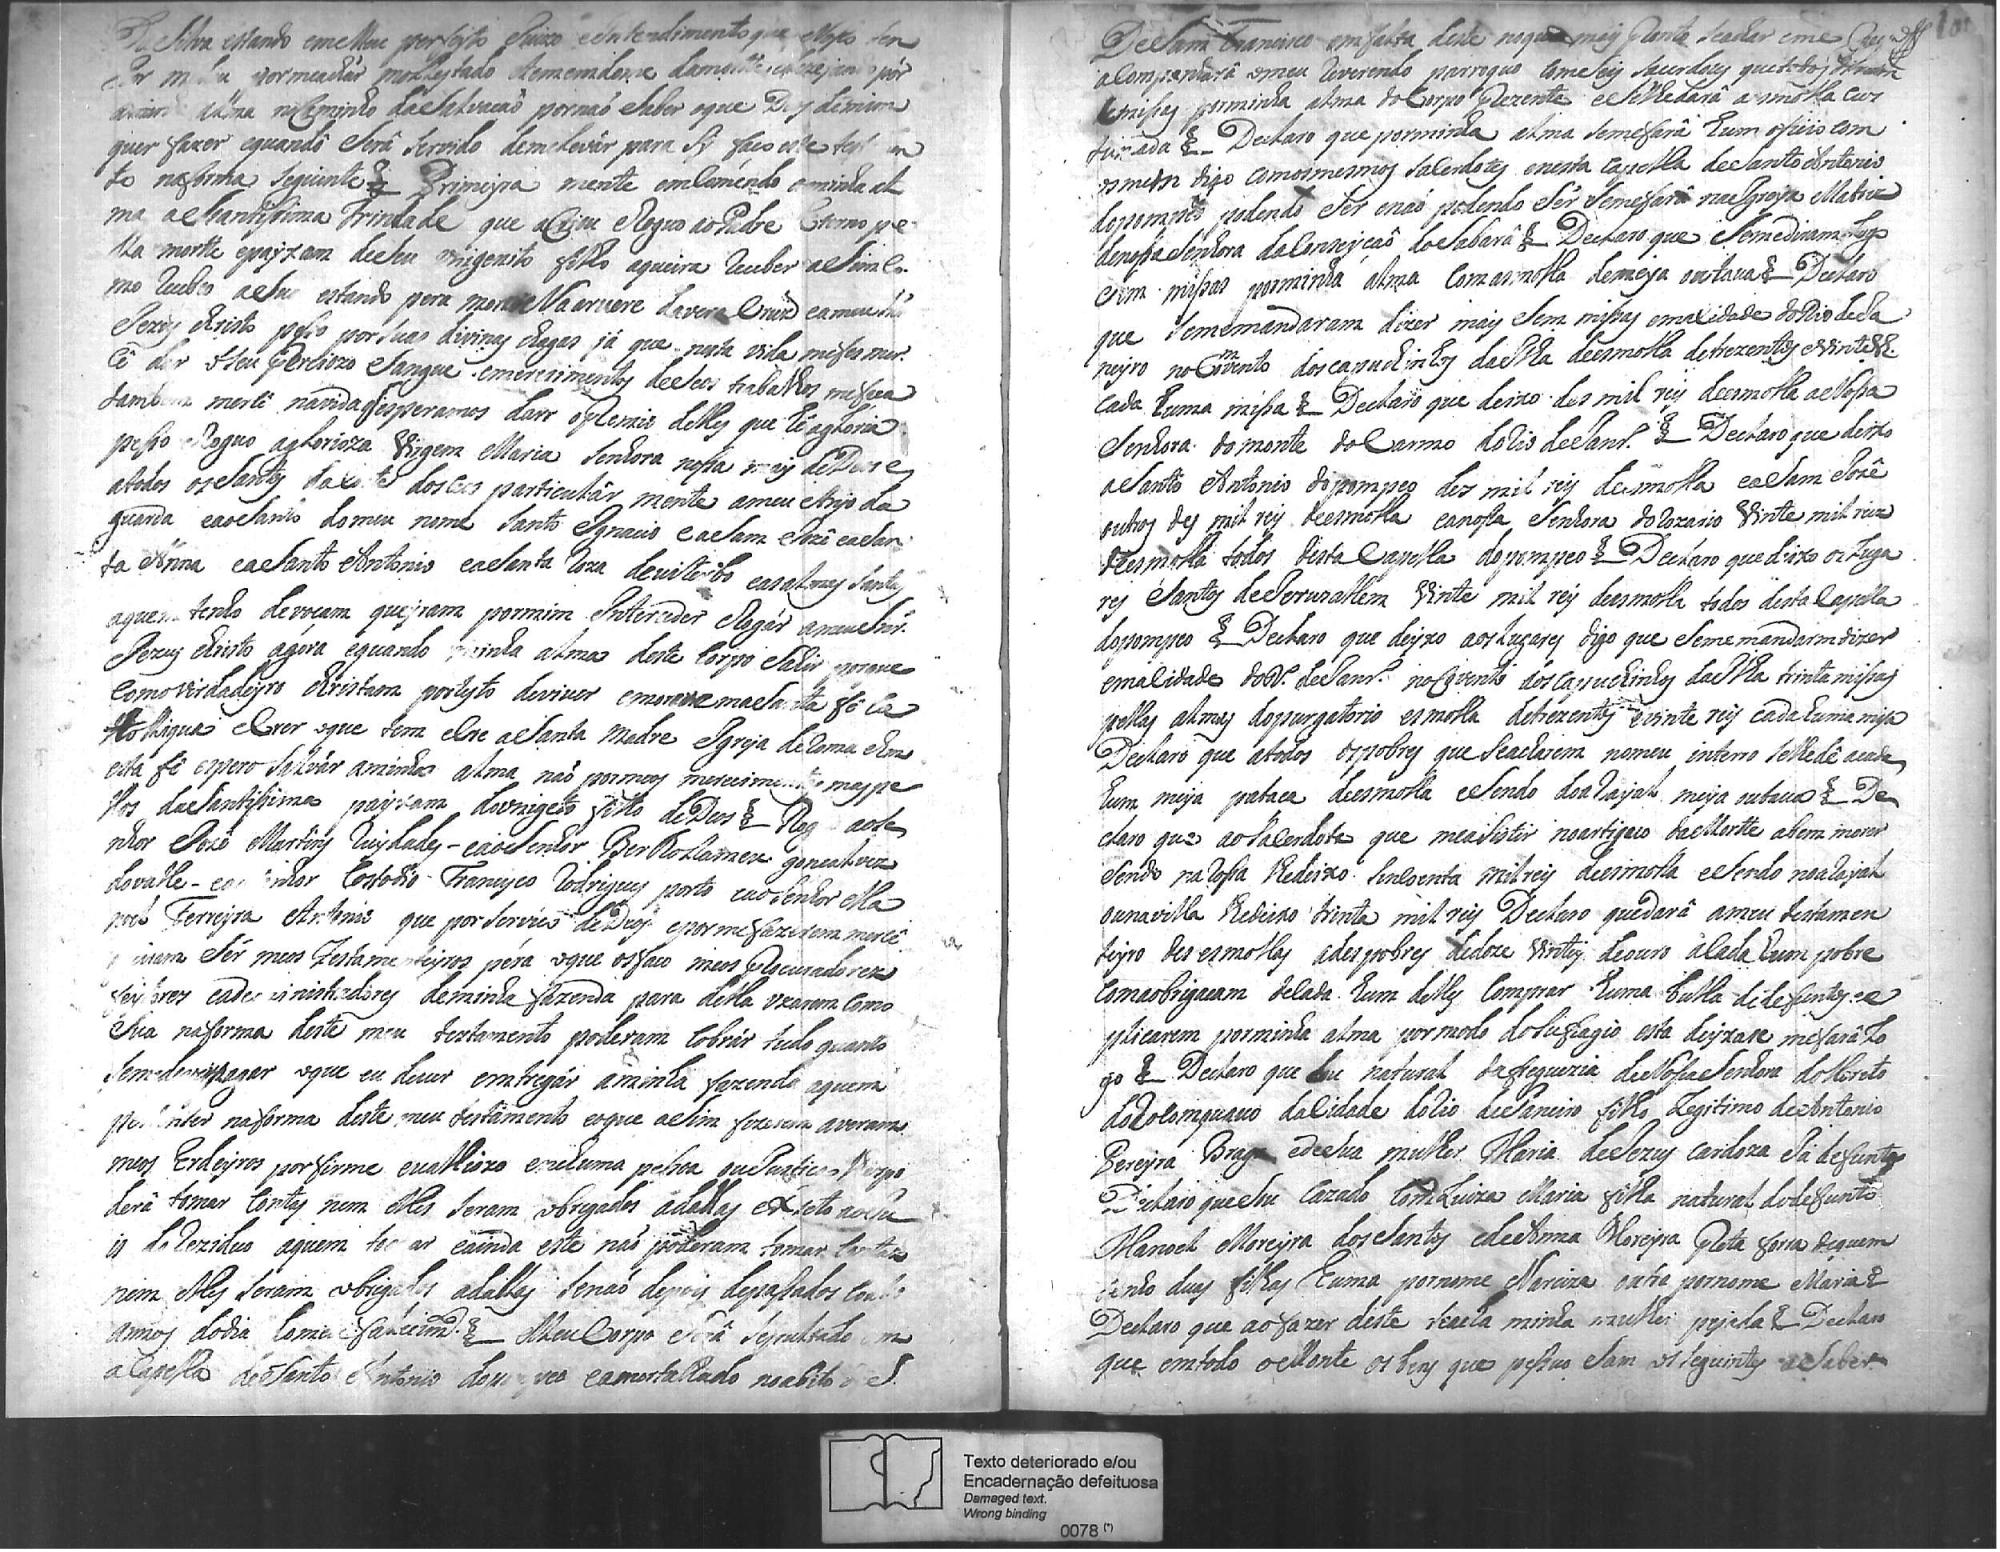 da Silva estando em meu perfeito Juizo e Intendimento que
por meachár mollestado etemendome damorte
alma no Caminho da Salvacaó pornaó Saber oque Ds demim
quer fazer equando Será Servido demelevár para Sy faco este test
to naforma Seguinte & Primeyra mente emComendo aminha al
ma aSantissima Trindade que aCriou eRoguo aoPadre Eterno pe
lla morte epayxam deSeu unigenito filho aqueira Receber aSimCo
mo Recebeo aSua estando pera morrer Naarvore davera Crús eameu
Jezus christo pesso porSuas divinas chagas já que nesta vida mefes mer
cê dar oSeu Perciozo Sangue emerecimentos deSeus trabalhos mefaca
tambem mercê navida q esperamos darr oPremio delles que hé agloria
pesso eRoguo agloriosa Virgem Maria Senhora nossa may deDeos e
atodos osSantos da corte dosCeos particulár mente ameu Anjo da
guarda eaoSanto domeu nome Santo Ignacio eaSam Jozé eaSan
ta Anna eaSanto Antonio eaSanta Roza deviterbo easalmas Santas
aquem tenho devocam queiram pormim Interceder eRogár ameuSnr.
Jezus christo agora equando minha alma deste Corpo Sahir porque
Comoverdadeyro christam protesto deviver emorrer emaSanta fé Ca
tholliqua eCrer oque tem eCre aSanta Madre Igreja deRoma eEm
esta fé espero Salvár aminha alma naó pormeus merecimentos mas pe
llos daSantissima payxam dounigeto filho deDeos & Rogo aoSe
nhor Jozé Martins Ruydades eaoSenhor Bertholameu goncalvez
dovalle eao Senhor Costodio Francisco Rodrigues porto eaoSenhor Ma
noel Ferreyra Antonio que porServico deDeos epormefazerem mercê
queiram Sér meus Testamenteyros péra oque osfaco meus Procuradores
feytores eadeministradores deminha fazenda para della uzarem Como
Sua naforma deste meu testamento poderam Cobrár tudo quanto
Semedever pagar oque eu dever emtregár aminha fazenda aquem
pertenser naforma deste meu testamento eoque aSim fezerem averam
meos Erdeyros porfirme evallioso enehuma pessoa ouJustica lhespo
derá tomar Contas nem elles Seram obrigados adallas exSeto no
is doReziduo aquem tocar eainda este naó poderam tomar Contas
nem elles Seram obrigados adallas Senaó depois depassados Coatro
annos dodia domeu falecimto. & Meu Corpo Será Sepultado em
aCapella deSanto Antonio dopompeo eamortalhado noabito deS.
DeSam Francisco emfalta deste noque mais Pronto Seachar eme
aCompanhará omeu Reverendo parroquo ComSeis Sacerdotes quetodos diram
missas porminha alma deCorpo Prezente eSelhedará aesmolla cus
tumada & Declaro queporminha alma Semefará hum oficio com
osmesm digo comosmesmos Sacerdotes enesta capella deSanto Antonio
dopompeo podendo Ser enaó podendo Sér Semefará naIgreja Matriz
denossaSenhora daConceycaó doSabará & Declaro que Semediram Logo
Cem missas porminha alma Comaesmolla demeya outava & Declaro
que Sememandaram dizer mais Sem missas emaCidade doRio deJa
neyro noConvento dosCapuchinhos daAjuda deesmolla detrezentos evinte R.
cada huma missa & Declaro que deixo des mil reis deesmolla aNossa
Senhora domonte doCarmo doRio deJanr. & Declaro que deixo
aSanto Antonio dopompeo des mil reis deesmolla eaSam Jozé
outros des mil reis deesmolla eanossa Senhora doRozario Vinte mil reis
deesmolla todos desta Capella dopompeo & Declaro que deixo osLuga
res Santos deJeruzallem Vinte mil reis deesmolla todos desta Capella
dopompeo & Declaro que deyxo aosLugares digo que Sememandarm dizer
emaCidade doR. deJanr. noConvento dosCapuchinhos daAjuda trinta missas
pellas almas dopurgatorio esmolla detrezentos evinte reis cada huma missa
Declaro que atodos ospobres que Seacharem nomeu interro Selhedê acada
hum meya pataca deesmolla eSendo doaRayal meya outava & De
claro que aoSacerdote que measistir noartigoo daMorte abem morrer
Sendo naRossa lhedeixo Sincoenta mil reis deesmolla eSendo noaRayal
ounavilla lhedeixo trinta mil reis Declaro quedará ameu testamen
teyro des esmollas ades pobres dedoze Vinteis deouro aCada hum pobre
Comaobrigacam deCada hum delles Comprar huma Bulla dedefuntos ea
plicarem porminha alma pormodo doSufragio esta deyxase mefará Lo
go & Declaro que Sou natural dafreguezia deNossaSenhora doLoreto
daCidade doRio deJaneiro filho Legitimo deAntonio
Pereyra Braga edeSua mulher Maria deJezus Cardoza Já defuntos
Declaro queSou Cazado ComLuiza Maria filha natural dodefunto
Manoel Moreyra dosSantos edeAnna Moreyra Preta forra dequem
tenho duas filhas huma pornome Narciza outra pornome Maria &
Declaro que aofazer deste Seacha minha mulher pejada & Declaro
que emtodo oMonte os bens que pessuo Sam osseguintes aSaber
Texto deteriorado e/ou
Encadernação defeituosa
Damaged text.
Wrong binding
0078 (*)